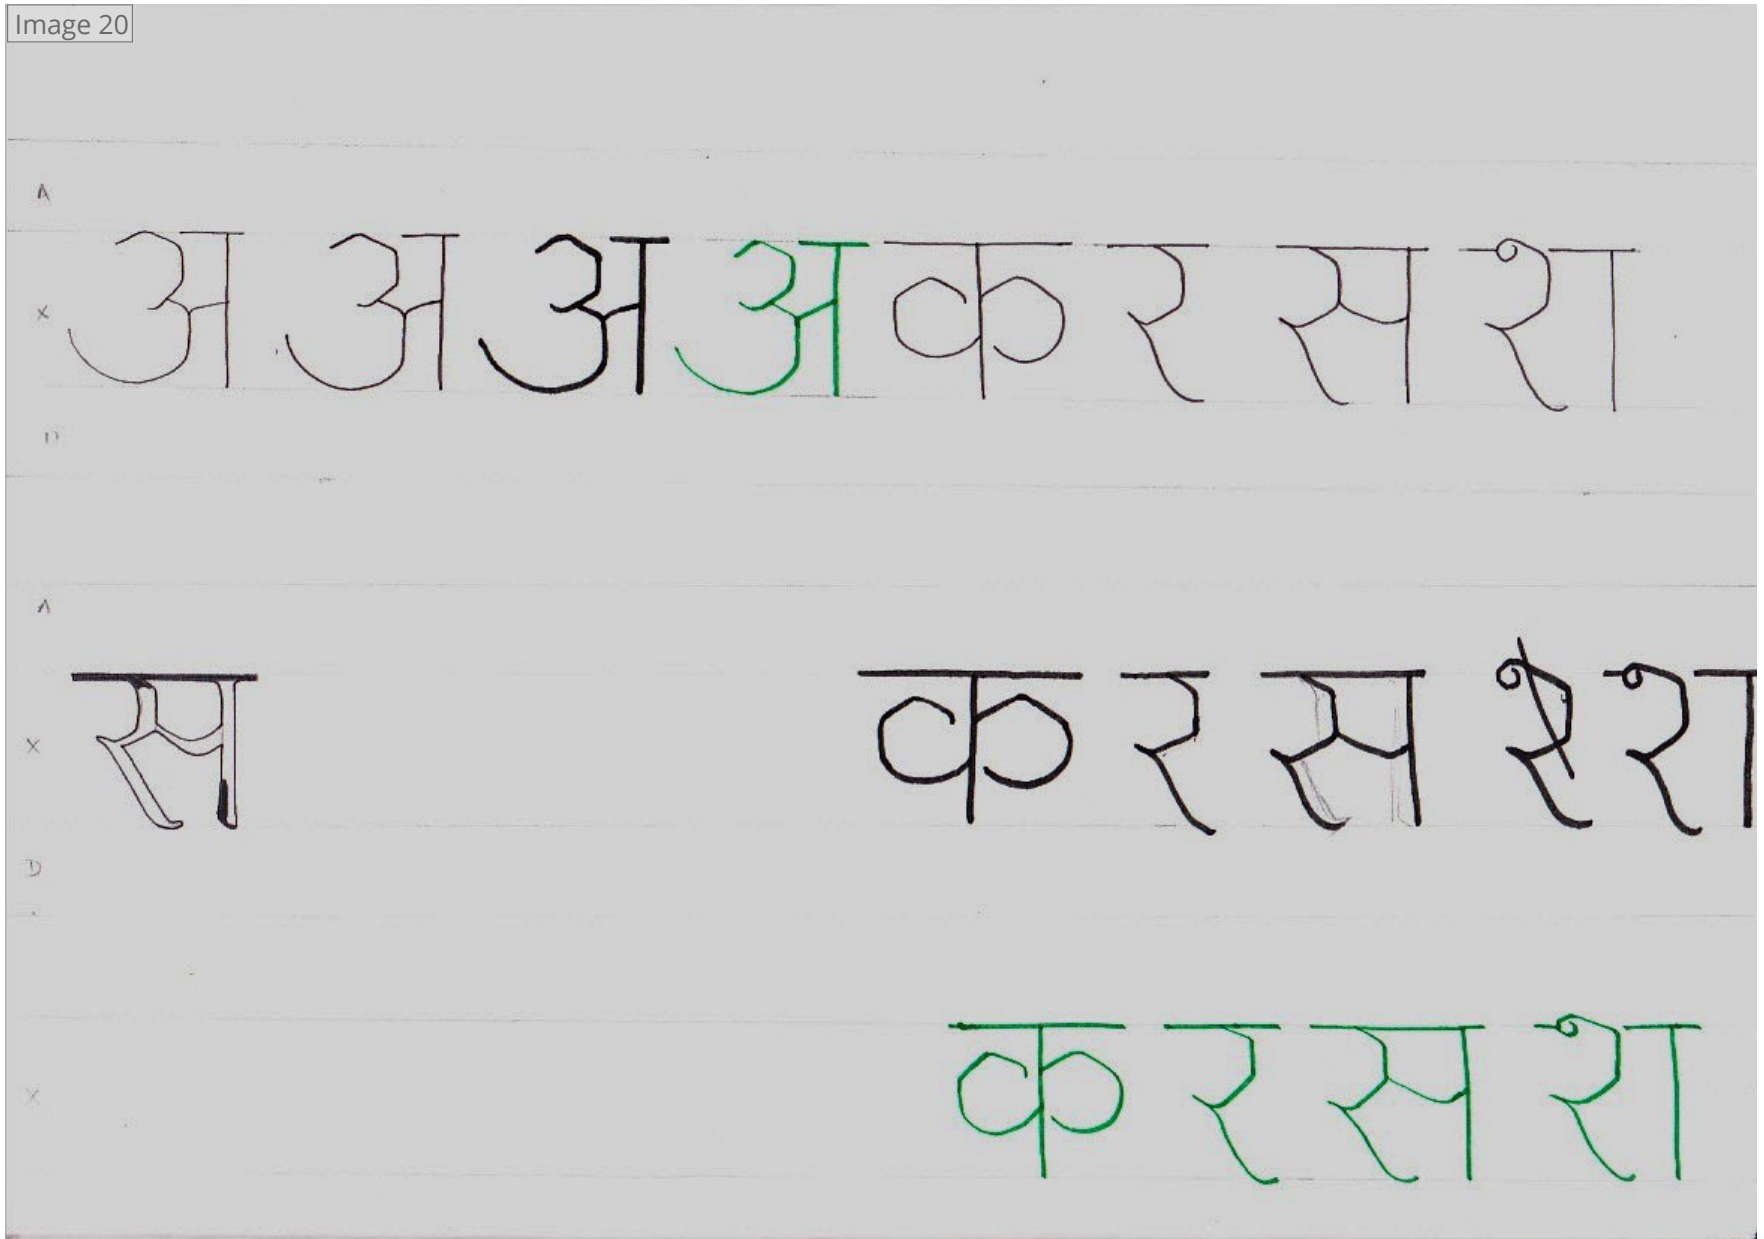 Image 20
A
अ अ अ अ क र स श
X
D
A
स क र स श श
X
D
क र स श
X